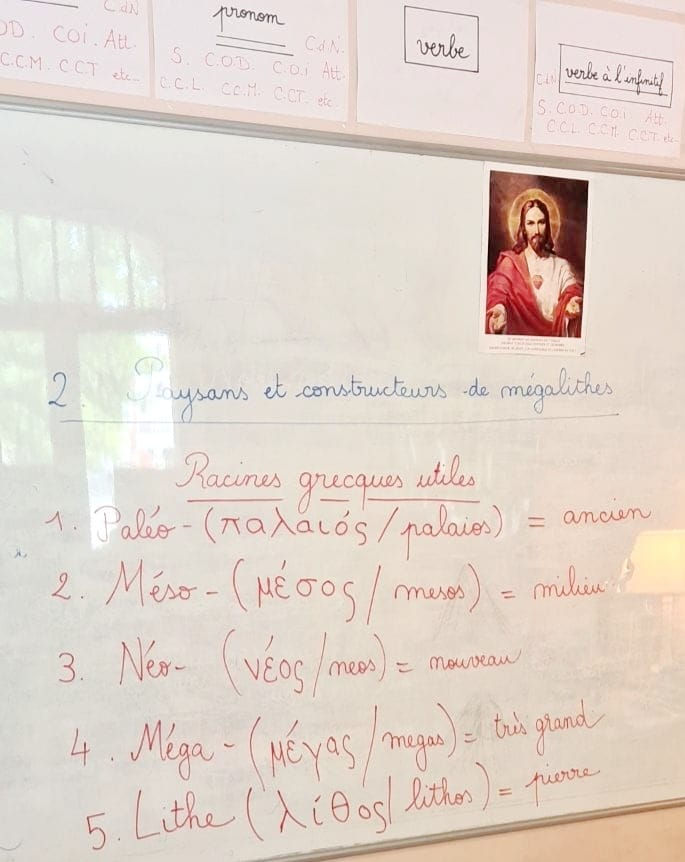 C.d.N
OD. COi. Att.
C.C.M. C.C.T etc...
pronom
C.d.N.
S. C.O.D. C.O.i Att.
C.C.L. C.C.M. C.CT. etc.
verbe
verbe à l'infinitif
C.d.N
S. C.O.D. C.O.i Att.
CCL. C.C.M. C.C.T. etc...
2 Paysans et constructeurs de mégalithes
Racines grecques utiles
1. Paléo-(παλαιός/palaios) = ancien
2. Méso-(μέσος/mesos) = milieu
3. Néo- (νέος/neos) = nouveau
4. Méga-(μέγας/megas) = très grand
5. Lithe (λίθος/lithos) = pierre